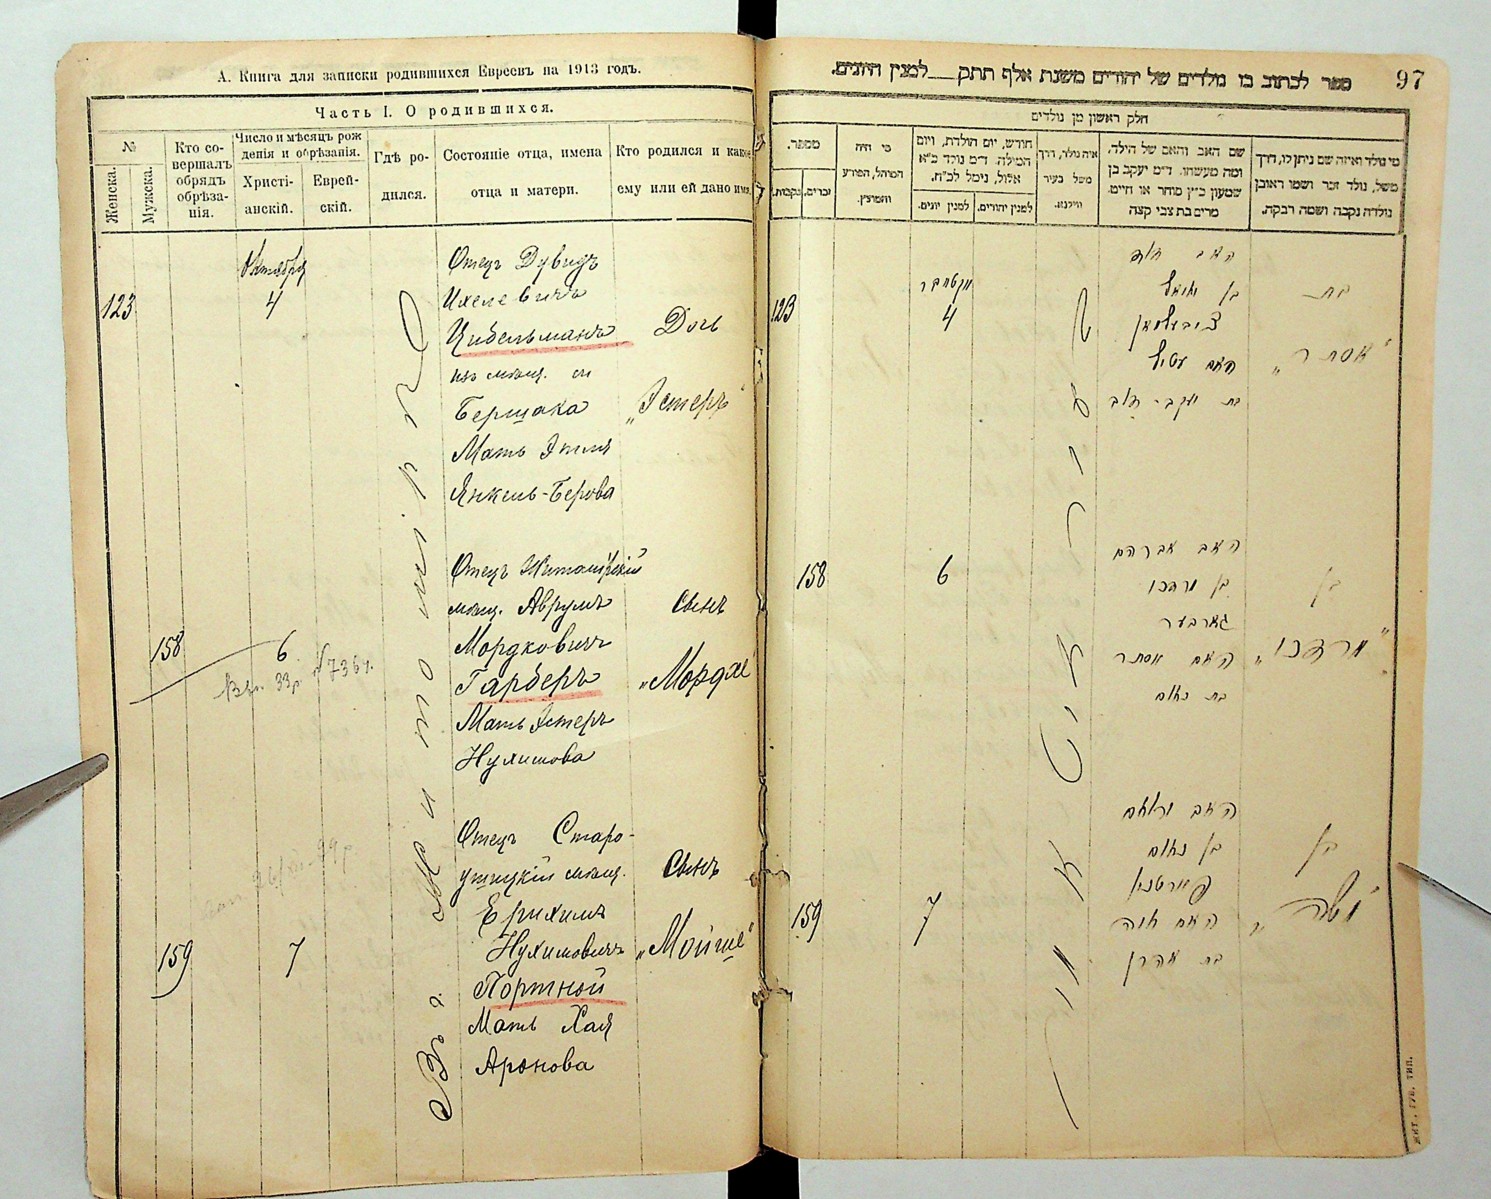 А. Книга для записки родившихся Евреевъ на 1913 годъ.
Часть I. О родившихся.
№
Женска.
Мужска.
Кто со-
вершалъ
обрядъ
обрѣза-
нія.
Число и мѣсяцъ рож
денія и обрѣзанія.
Христі-
анскій.
Еврей-
скій.
Гдѣ ро-
дился.
Состояніе отца, имена
отца и матери.
Кто родился и какое
ему или ей дано имя.
Октября
123
4
Отецъ Дувидъ
Ихелевичъ
Цибельманъ
изъ мѣщ.
Бершака
Мать Этля
Янкель-Берова
Дочь
„Эстеръ"
158
6
33г.
Отецъ Житомірскій
мѣщ. Аврумъ
Мордковичъ
Гарберъ
Мать Эстеръ
Нухимова
Сынъ
„Мордхе"
159
7
Отецъ Старо-
ушицкій мѣщ.
Ерихимъ
Нухимовичъ
Портной
Мать Хая
Аронова
Сынъ
„Мойше"
Въ г. Житомірѣ
97
ספר לכתוב בו נולדים של יהודים משנת אלף תתק__למנין היונים.
חלק ראשון מן נולדים
מספר.
נקבות.
זכרים.
מי היה
המוהל, הפורע
והמוצץ.
חודש, יום הולדת, ויום
המולה. ד״מ נולד כ״א
אלול, נימול לכ״ח.
למנין יונים.
למנין יהודים.
איה נולד, דרך
משל בעיר
ווילנא.
שם האב והאם של הילד,
ומה מעשהו. ד״מ יעקב בן
שמעון כ״ץ סוחר או חייט.
מרים בת צבי קצה
מי נולד ואיזה שם ניתן לו, דרך
משל, נולד זכר ושמו ראובן
נולדה נקבה ושמה רבקה.
אקטאבר
123
4
האב דוד
בן יחיאל
ציבעלמאן
האם עטיל
בת יעקב־דוב
בת
„אסתר"
158
6
האב אברהם
בן מרדכי
גארבער
האם אסתר
בת נחום
בן
„מרדכי"
159
7
בן נחום
פורטנוי
האם חיה
בת אהרן
בן
„משה"
זיטאמיר
ЖИТ., ГУБ. ТИП.